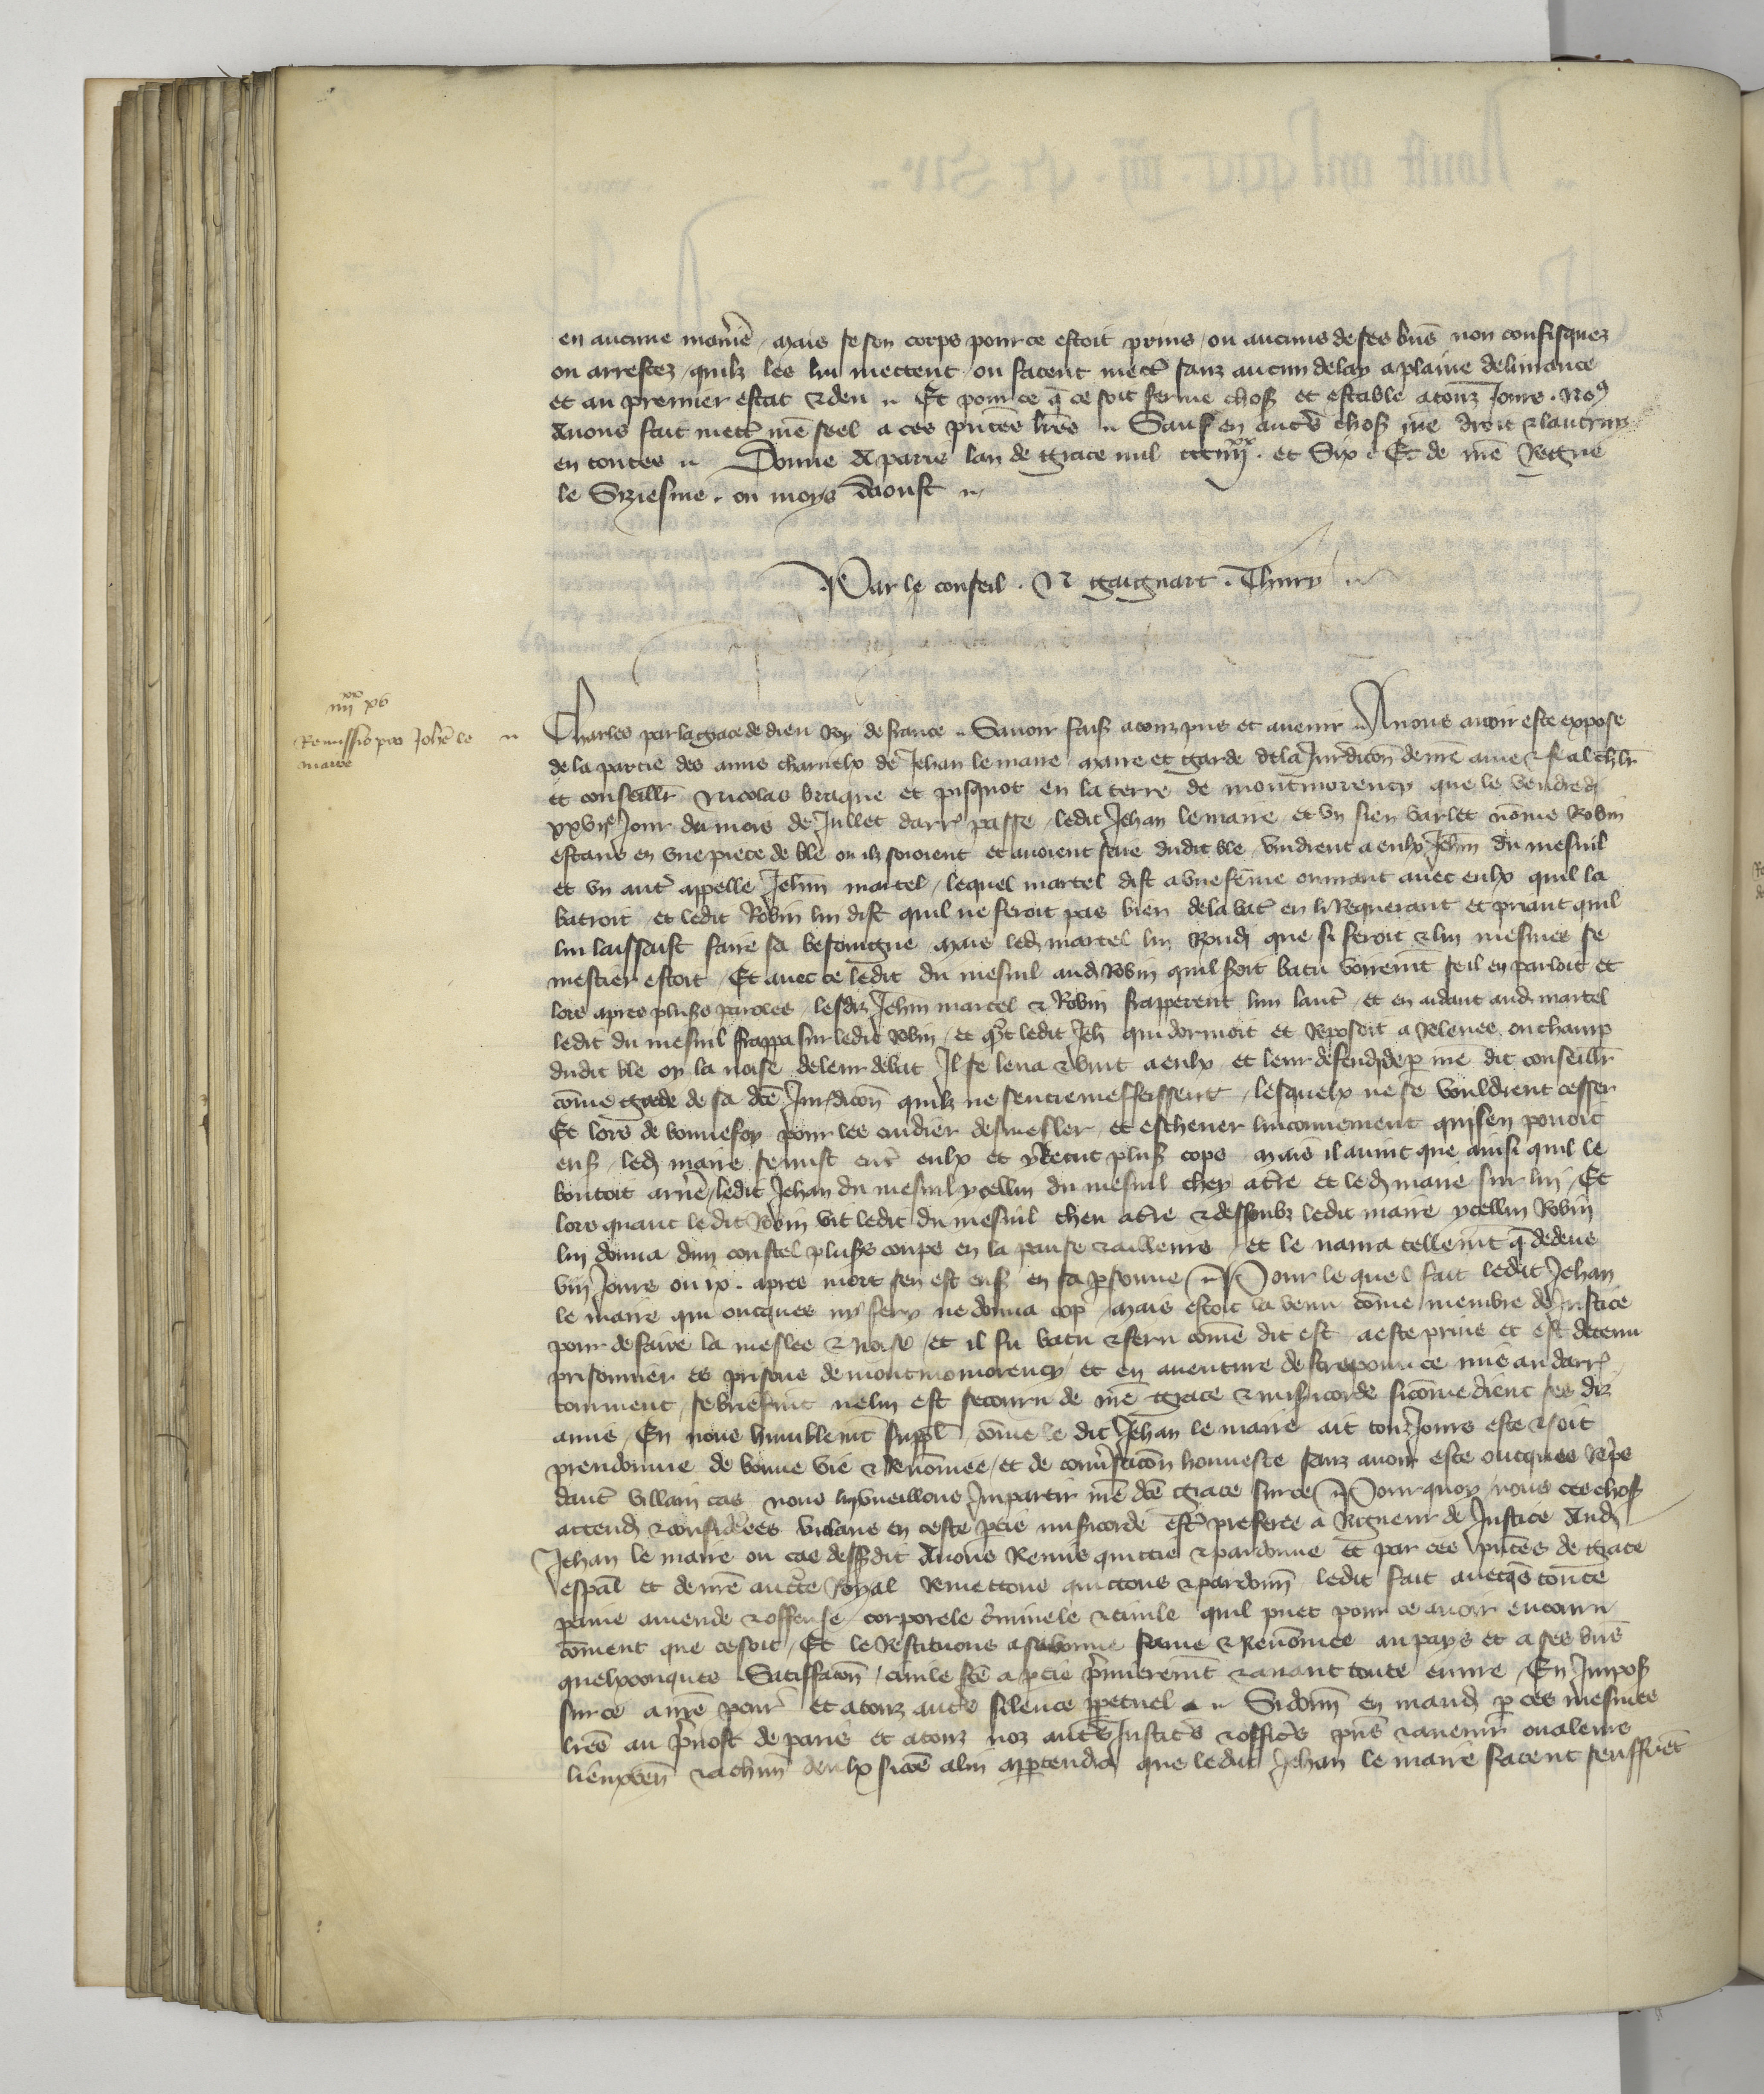 en aucune maniē, mais se son corps pour ce estoit prins, ou aucuns de ses biēs non confisquez
ou arrestez, quilz les lui mectent, ou facent mectē sanz aucun delay a plaine deliurance
et au premier estat & deu. Et pour ce q̄ ce soit ferme chose et estable a touz Jours. No⁹
Auons fait mectē nr̄e seel a ces pn̄tes lr̄es. Sauf en autres chos nr̄e droit & lautruy
en toutes. Donne A paris lan de grace mil ccciiiixx. et Six. Et de nr̄e Regne
le Siziesme. ou moys daoust.
Par le conseil. N gaignart. Thury.
iiiixx xv
Remissio pro Joh̄e le
maire
Charles par la grace de dieu Roy de france. Sauoir fais̄ a touz pn̄s et auenir. A nous auoir este expose
de la partie des amis charnelx de Jehan le maire maire et garde de la Jurdicōn de nr̄e ame & feal chlr̄
et conseillr̄ Nicolas braque et pisquot en la terre de montmorency que le vendredi
xxvije Jour du mois de Jullet darr̄ passe, ledit Jehan le maire et vn sien varlet nōme Robin
estans en vne piece de ble ou ilz soioient et auoient soie dudit ble, vindrent a eulx Jeh̄n du mesnil
et vn autē appelle Jeh̄n martel, lequel martel dist a vne fēme ouurant auec eulx quil la
batroit, et ledit Robin lui dist quil ne feroit pas bien de la batē en li Requerant et priant quil
lui laissast faire sa besoingne, mais led martel lui Rond que si feroit & lui mesmes se
mestier estoit, Et auec ce ledit du mesnil aud Robin quil soit batu voirem̄t se il en parloit et
lors apres plus̄s paroles, lesdiz Jehan martel & Robin frapperent lun lautē, et en aidant aud martel
ledit du mesnil frappa sur ledit Robin, et qt̄ ledit Jeh̄ qui dormoit et Reposoit a Releuee ou champ
dudit ble oy la noise de leur debat Il se leua & vint a eulx, et leur defendi de p̄ nr̄e dit conseillr̄
cōme garde de sa dc̄e Jurdicōn quilz ne sentremesfeissent, lesquelx ne se vouldrent cesser
Et lors de bonne foy pour les cuidier desmesler, et escheuer linconuenient qui sen pouoit
ens̄, led maire se mist entē eulx et y Recut plus̄ cops, mais il auint que ainsi quil le
boutoit arriē, ledit Jehan du mesnil ycellui du mesnil chey a tr̄e et led maire sur lui, Et
lors quant ledit Robin vit ledit du mesnil cheu a tr̄e & dessoubz ledit maire ycellui Robin
lui donna dun coustel plus̄s coups en la panse & ailleurs, et le naura tellem̄t q̄ dedens
viij Jours ou ix. apres mort sen est ens̄ en sa p̄sonne. Pour le quel fait ledit Jehan
le maire qui oncques ny fery ne donna cop, mais estoit la venu cōme membre de Justice
pour defaire la meslee & noise, et il fu batu & feru cōme dit est, a este prins et est detenu
prisonnier es prisons de montmomorency, et en auenture de
tourment, se briefm̄t ne lui est secouru de nr̄e grace & misēicorde sicōme dient ses diz
amis, En nous humblem̄t suppl̄, cōme le dit Jehan le maire ait touzJours este & soit
preudomme de bonne vie & Renōmee, et de conu̇sacōn honneste sanz auoir este oncques Repris
dautē villain cas, nous lui vueillons Impartir nr̄e dc̄e grace sur ce. Pour quoy nous ces chos̄
attend & considerees voulans en ceste p̄tie misēicorde estē preferee a Rigueur de Justice Aud
Jehan le maire ou cas dessusdit Auons Remis quictie & pardonne Et par ces pn̄tes de grace
esp̄al et de nr̄e auct̄te Royal Remettons quictons & pardonn̄ ledit fait auecqs̄ toute
paine amende & offense, corporele cr̄iminele & ciuile quil puet pour ce auoir encouru
cōment que ce soit, Et le Restituons a sa bonne fame & Renōmee au pays et a ses biēs
quelxconques Satisfacōn, ciuile fc̄e a p̄tie p̄mierem̄t & auant toute euure, En Impos̄
sur ce a nr̄e procur̄ et a touz autres silence p̄petuel. Sidonn̄ en mand p̄ ces mesmes
lr̄es au p̄uost de paris et a touz noz autres Justic̄s & offic̄s pn̄s & auenir ou a leurs
lieuxten̄ & a chun̄ deulx sicōe a lui appartendra que ledit Jehan le maire facent seuffrēt